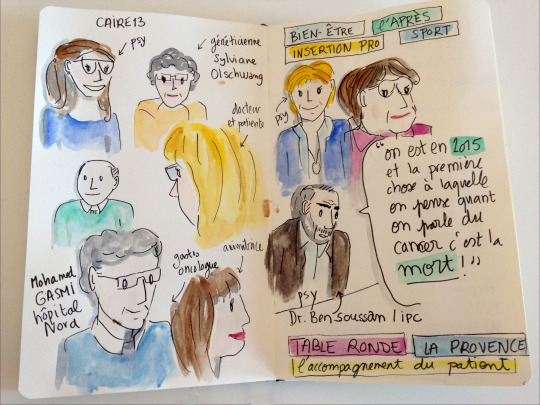 CAIRE13
psy
généticienne
Sylviane
Olschwang
docteur
et patiente
Mohamed
GASMI
hôpital
Nord
gastro
oncologue
animatrice
BIEN-ÊTRE
l'APRÈS
INSERTION PRO
SPORT
psy
"on est en 2015
et la première
chose à laquelle
on pense quant
on parle du
cancer c'est la
mort !"
psy
Dr. Ben Soussan | ipc
TABLE RONDE
LA PROVENCE
l'accompagnement du patient